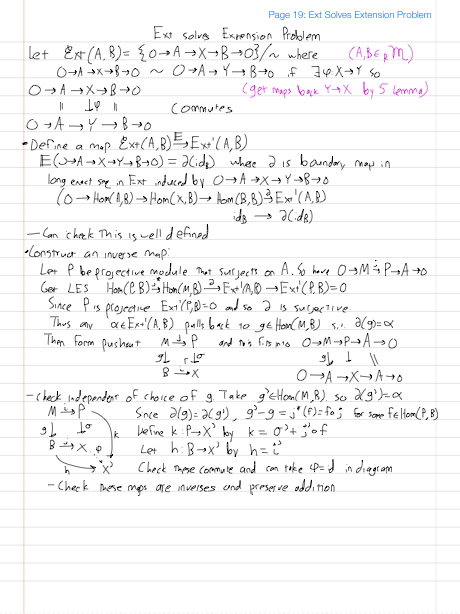 Page 19: Ext Solves Extension Problem
Ext solves Extension Problem
Let Ext(A,B) = {0→A→X→B→0}/~ where (A,B∈ᵣM)
0→A→X→B→0 ~ 0→A→Y→B→0 if ∃φ:X→Y so
0→A→X→B→0 (get maps back Y→X by 5 lemma)
|| ↓φ || commutes
0→A→Y→B→0
• Define a map Ext(A,B) E→ Ext¹(A,B)
E(0→A→X→Y→B→0) = ∂(id_B) where ∂ is boundary map in
long exact seq in Ext induced by 0→A→X→Y→B→0
(0→Hom(A,B)→Hom(X,B)→Hom(B,B)∂→Ext¹(A,B)
id_B → ∂(id_B)
- Can check this is well defined
• Construct an inverse map:
Let P be projective module that surjects on A. So have 0→M j→P→A→0
Get LES Hom(P,B) j*→Hom(M,B) ∂→Ext¹(A,B)→Ext¹(P,B)=0
Since P is projective Ext¹(P,B)=0 and so ∂ is surjective.
Thus any α∈Ext¹(A,B) pulls back to g∈Hom(M,B) s.t. ∂(g)=α
Then form pushout M j→P and this fits into 0→M→P→A→0
g↓ ↓σ g↓ ↓ ||
B→X 0→A→X→A→0
- check independent of choice of g. Take g'∈Hom(M,B) so ∂(g')=α
M j→P Since ∂(g)=∂(g'), g'-g=j*(f)=f∘j for some f∈Hom(P,B)
g↓ ↓σ k Define k:P→X' by k=σ'+j'∘f
B i→X φ Let h:B→X' by h=i'
h X' Check these commute and can take φ=d in diagram
- Check these maps are inverses and preserve addition